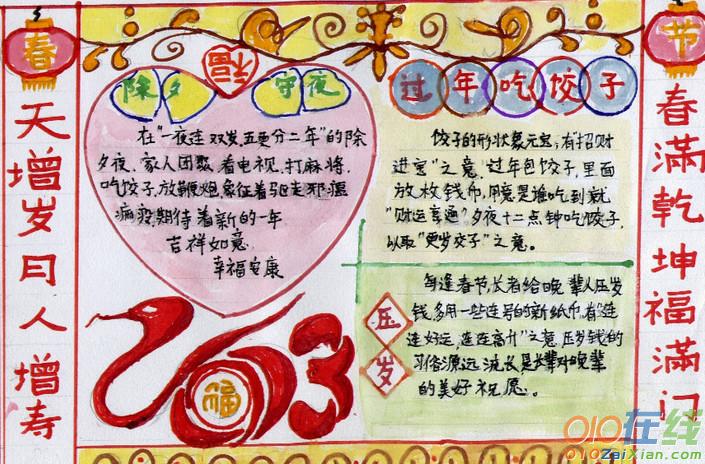 春
节
天增岁月人增寿
春满乾坤福满门
福
除夕 守夜
在"一夜连双岁,五更分二年"的除
夕夜,家人团聚,看电视,打麻将,
吃饺子,放鞭炮,象征着驱走邪瘟
病疫,期待着新的一年
吉祥如意
幸福安康
过年吃饺子
饺子的形状象元宝,有"招财
进宝"之意,过年包饺子,里面
放枚钱币,用意是谁吃到就
"财运亨通"夕夜十二点钟吃饺子,
以取"更岁交子"之意。
压岁
每逢春节,长者给晚辈人压岁
钱,多用一些连号的新纸币,有"连
连好运,连连高升"之意,压岁钱的
习俗源远流长是长辈对晚辈
的美好祝愿。
2013
福
010在线
010ZaiXian.com